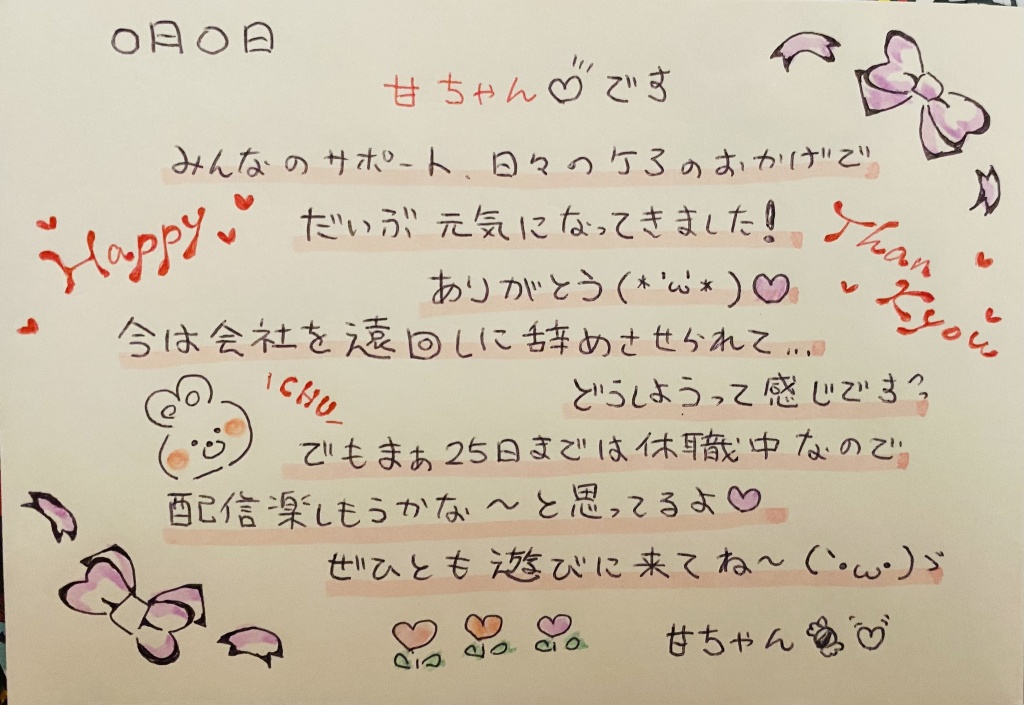 〇月〇日
甘ちゃん♡です
みんなのサポート、日々のケアのおかげで
だいぶ元気になってきました!
Happy
Thank you
ありがとう(*'ω'*)♡
今は会社を遠回しに辞めさせられて...
CHU
どうしようって感じです
でもまぁ25日までは休職中なので
配信楽しもうかな〜と思ってるよ♡
ぜひとも遊びに来てね〜(`・ω・)ゞ
甘ちゃん♡